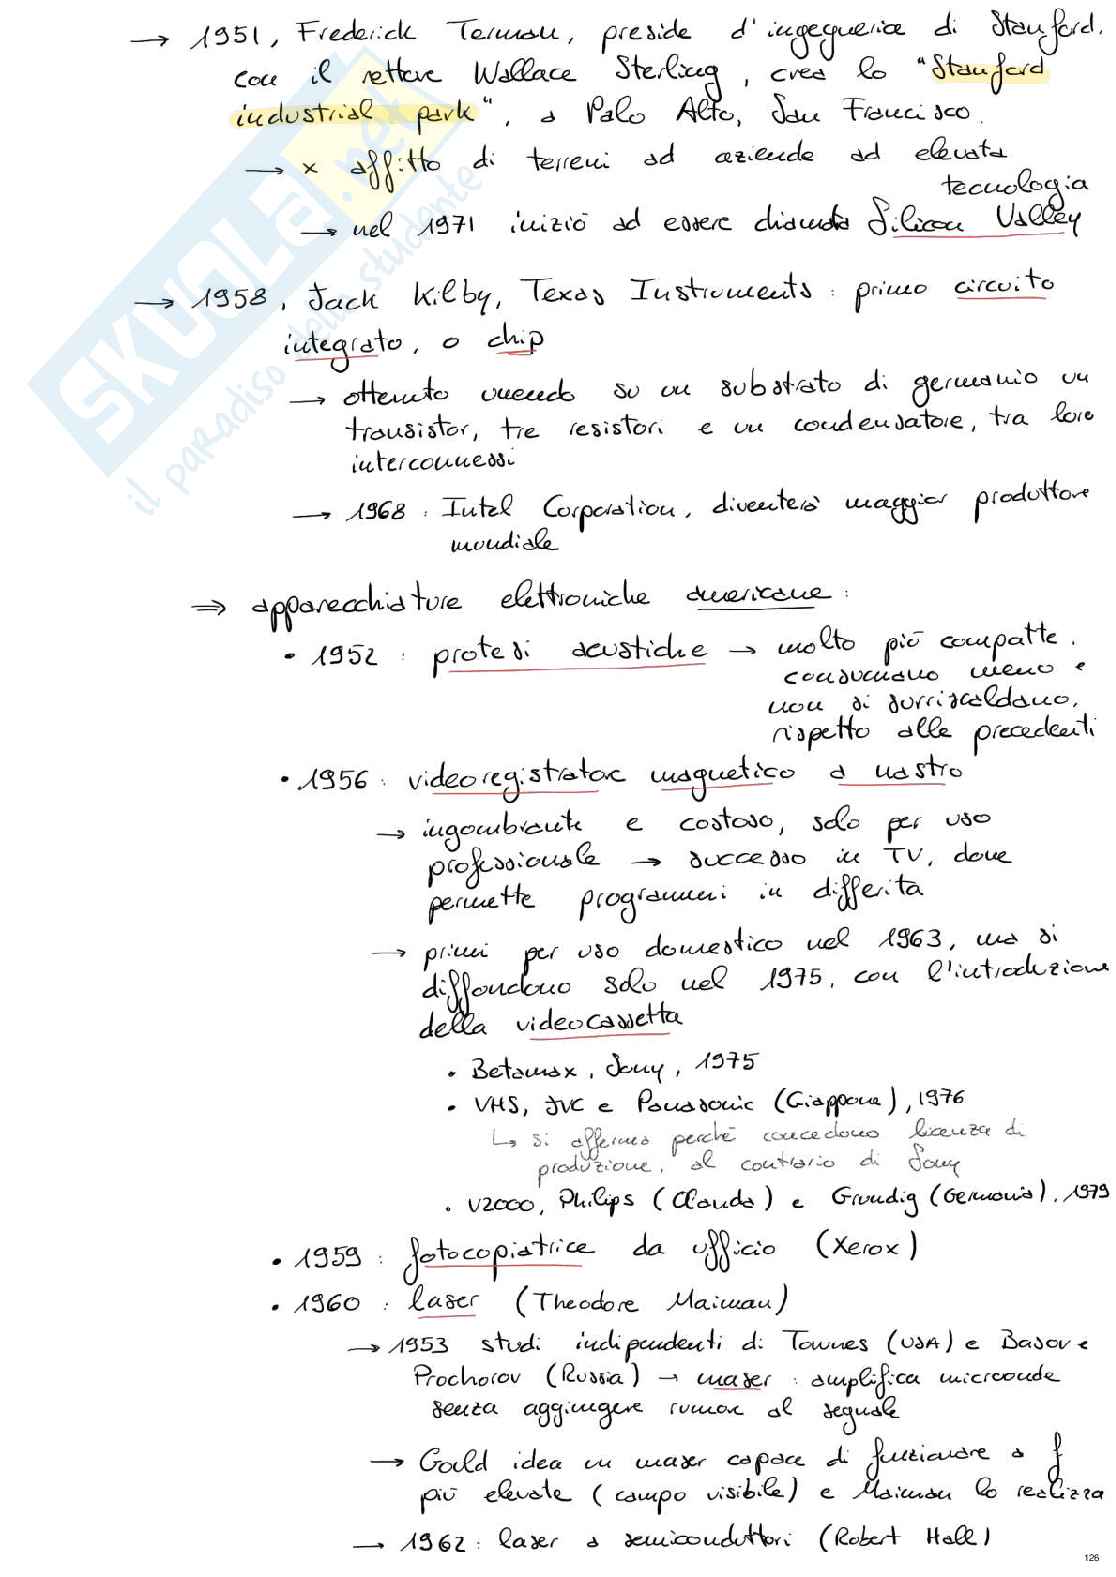 → 1951, Frederick Terman, preside d'ingegneria di Stanford,
con il rettore Wallace Sterling, crea lo "Stanford
industrial park", a Palo Alto, San Francisco.
→ x affitto di terreni ad aziende ad elevata
tecnologia
→ nel 1971 iniziò ad essere chiamata Silicon Valley
→ 1958, Jack Kilby, Texas Instruments: primo circuito
integrato, o chip
→ ottenuto unendo su un substrato di germanio un
transistor, tre resistori e un condensatore, tra loro
interconnessi
→ 1968: Intel Corporation, diventerà maggior produttore
mondiale
⇒ apparecchiature elettroniche americane:
• 1952: protesi acustiche → molto più compatte,
consumano meno e
non si surriscaldano,
rispetto alle precedenti
• 1956: videoregistratore magnetico a nastro
→ ingombrante e costoso, solo per uso
professionale → successo in TV, dove
permette programmi in differita
→ primi per uso domestico nel 1963, ma si
diffondono solo nel 1975, con l'introduzione
della videocassetta
• Betamax, Sony, 1975
• VHS, JVC e Panasonic (Giappone), 1976
↳ si afferma perché concedono licenza di
produzione, al contrario di Sony
• V2000, Philips (Olanda) e Grundig (Germania), 1979
• 1959: fotocopiatrice da ufficio (Xerox)
• 1960: laser (Theodore Maiman)
→ 1953 studi indipendenti di Townes (USA) e Basov e
Prochorov (Russia) → maser: amplifica microonde
senza aggiungere rumore al segnale
→ Gould idea un maser capace di funzionare a f
più elevate (campo visibile) e Maiman lo realizza
→ 1962: laser a semiconduttori (Robert Hall)
SKUOLA.net
il paradiso dello studente
126